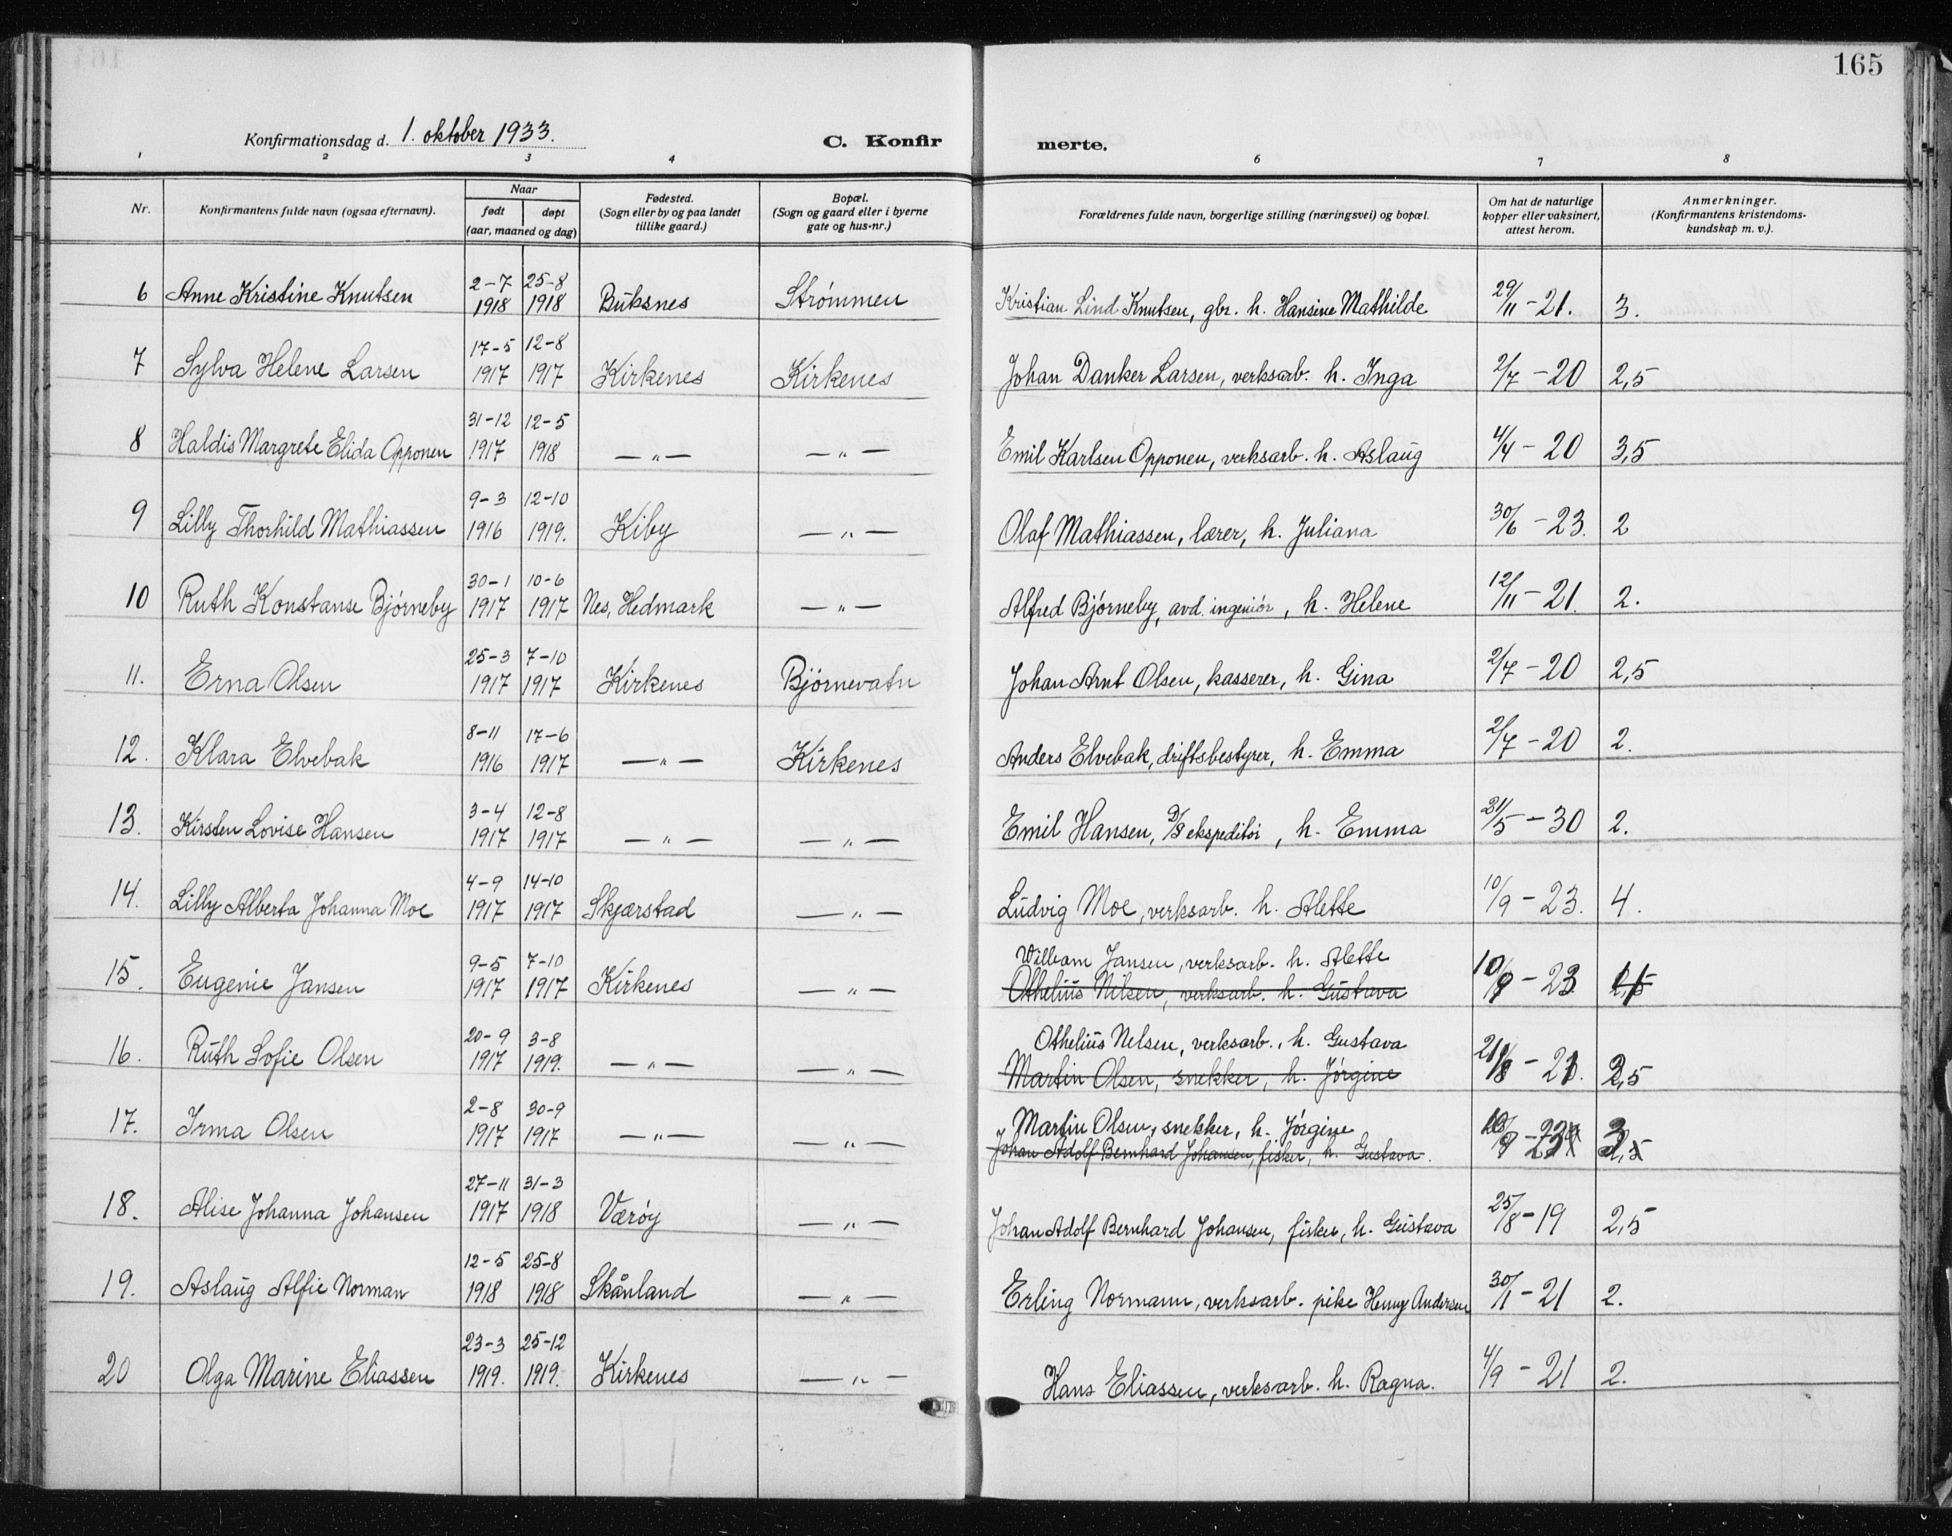 165
Konfirmationsdag d. 1. oktober 1933.
C. Konfirmerte.
1 2 3 4 6 7 8
Nr.
Konfirmantens fulde navn (ogsaa efternavn).
Naar
født døpt
(aar, maaned og dag)
Fødested.
(Sogn eller by og paa landet
tillike gaard.)
Bopæl.
(Sogn og gaard eller i byerne
gate og hus-nr.)
Forældrenes fulde navn, borgerlige stilling (næringsvei) og bopæl.
Om hat de naturlige
kopper eller vaksinert,
attest herom.
Anmerkninger.
(Konfirmantens kristendoms-
kundskap m. v.).
2-7 25-8
6 Anne Kristine Knutsen 1918 1918 Buksnes Strømmen Kristian Lind Knutsen, gbr. h. Hansine Mathilde 29/11-21. 3.
17-5 12-8
7 Sylva Helene Larsen 1917 1917 Kirkenes Kirkenes Johan Danker Larsen, verksarb. h. Inga 2/7-20 2,5
31-12 12-5
8 Haldis Margrete Elida Opponen 1917 1918 —„— —„— Emil Karlsen Opponen, verksarb. h. Aslaug 4/4-20 3,5
9-3 12-10
9 Lilly Thorhild Mathiassen 1916 1919. Kiby —„— Olaf Mathiassen, lærer, h. Juliana 30/6-23. 2
30-1 10-6
10 Ruth Konstanse Bjørneby 1917 1917 Nes, Hedmark —„— Alfred Bjørneby, avd. ingeniør, h. Helene 12/11-21. 2.
25-3 7-10
11. Erna Olsen 1917 1917 Kirkenes Bjørnevatn Johan Arnt Olsen, kasserer, h. Gina 2/7-20 2,5
8-11 17-6
12. Klara Elvebak 1916 1917 —„— Kirkenes Anders Elvebak, driftsbestyrer, h. Emma 2/7-20 2.
3-4 12-8
13. Kirsten Lovise Hansen 1917 1917 —„— —„— Emil Hansen, D/S ekspeditør, h. Emma 21/5-30 2.
4-9 14-10
14. Lilly Alberta Johanna Moe 1917 1917 Skjærstad —„— Ludvig Moe, verksarb. h. Alette 10/9-23. 4.
9-5 7-10 William Jansen, verksarb. h. Alette
15. Eugenie Jansen 1917 1917 Kirkenes —„— Othelius Nilsen, verksarb. h. Gustava 10/9-23
20-9 3-8 Othelius Nelsen, verksarb., h. Gustava
16. Ruth Sofie Olsen 1917 1919. —„— —„— Martin Olsen, snekker, h. Jørgine
2-8 30-9 Martin Olsen, snekker, h. Jørgine
17. Irma Olsen 1917 1917 —„— —„— Johan Adolf Bernhard Johansen, fisker, h. Gustava.
27-11 31-3
18. Alise Johanna Johansen 1917 1918 Værøy —„— Johan Adolf Bernhard Johansen, fisker, h. Gustava 25/8-19 2,5
12-5 25-8
19. Aslaug Alfie Norman 1918 1918 Skånland —„— Erling Normann, verksarb. pike Henny Andersen 30/1-21 2.
23-3 25-12
20 Olga Marine Eliassen 1919. 1919. Kirkenes —„— Hans Eliassen, verksarb. h. Ragna. 4/9-21 2.